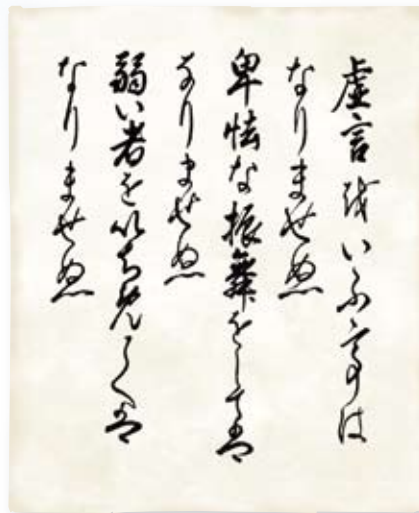 虚言をいふ事は
なりませぬ
卑怯な振舞をしては
なりませぬ
弱い者をいぢめては
なりませぬ